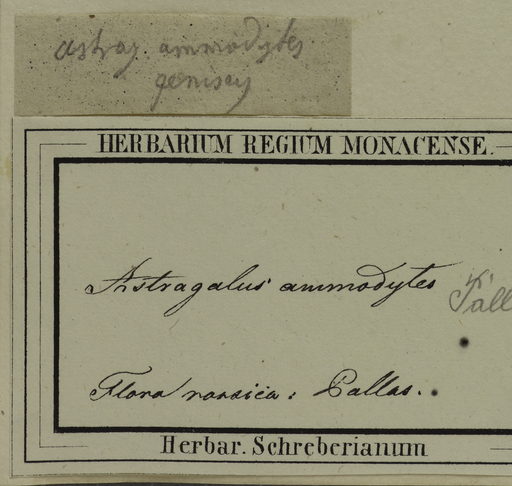 astrag. ammodytes
jenisey
HERBARIUM REGIUM MONACENSE.
Astragalus ammodytes Pall
Flora rossica: Pallas.
Herbar. Schreberianum